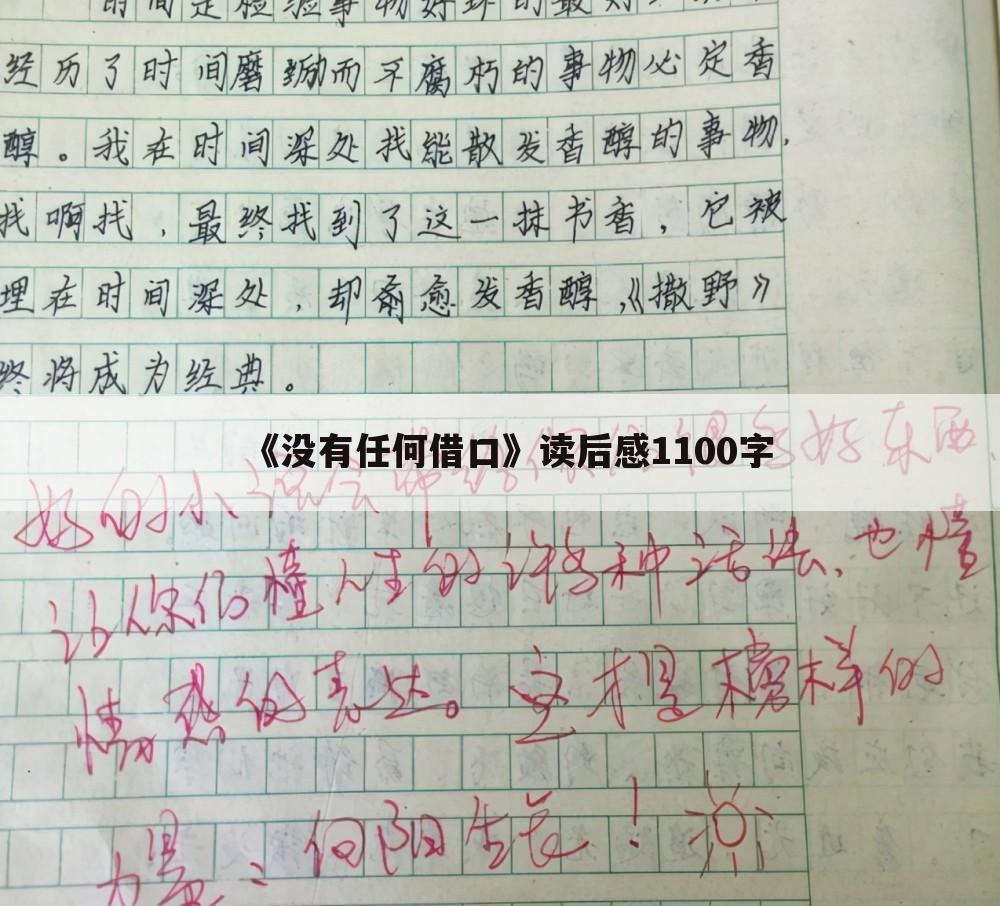 时间是检验事物好坏的最
经历了时间磨砺而不腐朽的事物必定香
醇。我在时间深处找能散发香醇的事物,
找啊找,最终找到了这一抹书香,它被
埋在时间深处,却愈发香醇,《撒野》
终将成为经典。
《没有任何借口》读后感1100字
好的小说会 好东西,
让你们懂人生的许多种活法,也懂
情感的表达。这才是榜样的
力量:向阳生长!